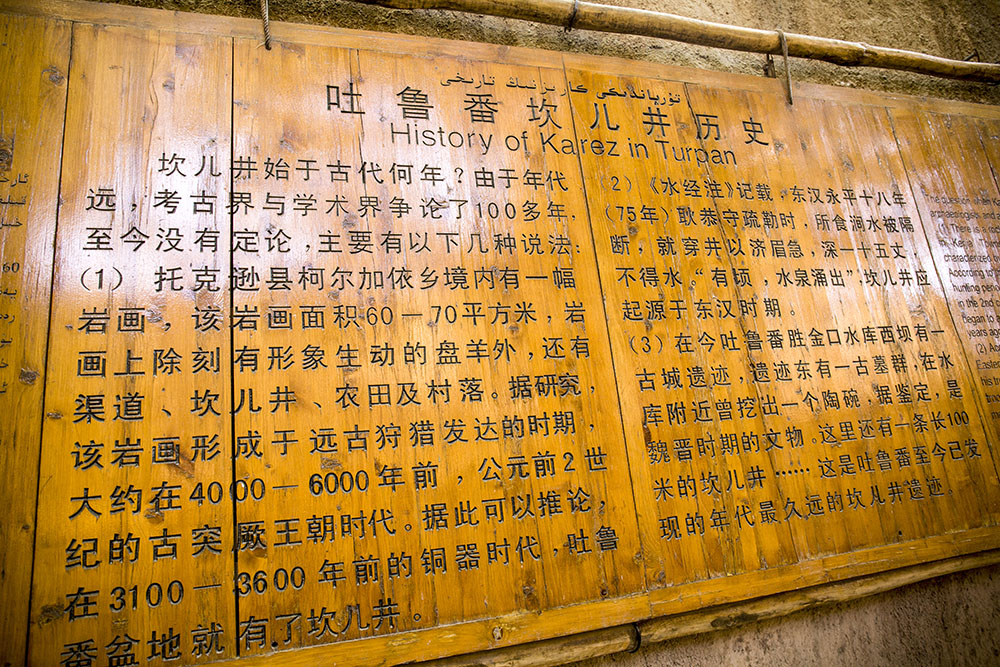 تۇرپاندىكى كارىزنىڭ تارىخى
吐鲁番坎儿井历史
History of Karez in Turpan
坎儿井始于古代何年？由于年代
远，考古界与学术界争论了100多年，
至今没有定论，主要有以下几种说法：
（1） 托克逊县柯尔加依乡境内有一幅
岩画，该岩画面积60－70平方米，岩
画上除刻有形象生动的盘羊外，还有
渠道、坎儿井、农田及村落。据研究，
该岩画形成于远古狩猎发达的时期，
大约在4000－6000年前，公元前2世
纪的古突厥王朝时代。据此可以推论，
在3100－3600年前的铜器时代，吐鲁
番盆地就有了坎儿井。
2）《水经注》记载，东汉永平十八年
（75年）耿恭守疏勒时，所食涧水被隔
断，就穿井以济眉急，深一十五丈，
不得水“有顷，水泉涌出”，坎儿井应
起源于东汉时期。
（3）在今吐鲁番胜金口水库西坝有一
古城遗迹，遗迹东有一古墓群，在水
库附近曾挖出一个陶碗，据鉴定，是
魏晋时期的文物。这里还有一条长100
米的坎儿井……这是吐鲁番至今已发
现的年代最久远的坎儿井遗迹。
The question when
archaeologists and
(1) There is a rock
characterized by
According to the
hunting period
in the 2nd c
began to
years ago
(2) Acc
Eastern